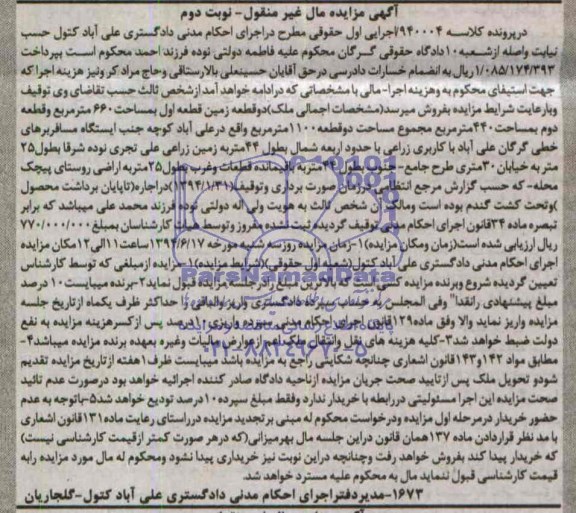 آگهی مزایده مال غیر منقول- نوبت دوم
درپرونده کلاسه ۹۴۰۰۰۴/اجرایی اول حقوقی مطرح دراجرای احکام مدنی دادگستری علی آباد کتول حسب
نیابت واصله ازشعبه۱۰دادگاه حقوقی گرگان محکوم علیه فاطمه دولتی نوده فرزند احمد محکوم است بپرداخت
۱/۰۸۵/۱۷۴/۳۹۳ ریال به انضمام خسارات دادرسی درحق آقایان حسینعلی بالارستاقی وحاج مراد کر ونیز هزینه اجرا که
جهت استیفای محکوم به وهزینه اجرا-مالی با مشخصاتی که درادامه خواهد آمد ازشخص ثالث حسب تقاضای وی توقیف
وبارعایت شرایط مزایده بفروش میرسد(مشخصات اجمالی ملک)دوقطعه زمین قطعه اول بمساحت۶۶۰ مترمربع وقطعه
دوم بمساحت۴۴۰مترمربع مجموع مساحت دوقطعه۱۱۰۰مترمربع واقع درعلی آباد کوچه جنب ایستگاه مسافربرهای
خطی گرگان علی آباد با کاربری زراعی با حدود اربعه شمال بطول ۴۴متربه زمین زراعی علی تجری نوده شرقا بطول۲۵
متر به خیابان ۳۰متری طرح جامع-جنوب بطول ۴۴متربه باقیمانده قطعات وغرب بطول۲۵متربه اراضی روستای پیچک
محله- که حسب گزارش مرجع انتظامی درزمان صورت برداری وتوقیف(۱۳۹۴/۱/۳۱)دراجاره(تاپایان برداشت محصول
)وتحت کشت گندم بوده است ومالک آن شخص ثالث به هویت ولی اله دولتی نوده فرزند محمد علی میباشد که برابر
تبصره ماده ۳۴قانون اجرای احکام مدنی توقیف گردیده ثبت نشده مفروز وتوسط هیات کارشناسان بمبلغ۷۷۰/۰۰۰/۰۰۰
ریال ارزیابی شده است(زمان ومکان مزایده)۱-زمان مزایده روزسه شنبه مورخه ۱۳۹۴/۶/۱۷ساعت۱۱الی۱۲مکان مزایده
اجرای احکام مدنی دادگستری علی آباد کتول(شعبه اول حقوقی)(شرایط مزایده)۱-مزایده ازمبلغی که توسط کارشناس
تعیین گردیده شروع وبرنده مزایده کسی است که بالاترین مبلغ رادرجلسه مزایده قبول نماید۲-برنده میبایست۱۰ درصد
مبلغ پیشنهادی رانقدا" وفی المجلس به حساب سپرده دادگستری واریز والباقی را حداکثر ظرف یکماه ازتاریخ جلسه
مزایده واریز نماید والا وفق ماده۱۲۹قانون اجرای احکام مدنی سپرده واریزی۱۰درصد پس ازکسرهزینه مزایده به نفع
دولت ضبط خواهد شد۳-کلیه هزینه های نقل وانتقال ملک اعم ازعوارض مالیات وغیره بعهده برنده مزایده میباشد۴-
مطابق مواد ۱۴۲و۱۴۳قانون اشعاری چنانچه شکایتی راجع به مزایده باشد میبایست ظرف۱هفته ازتاریخ مزایده تقدیم
شودو تحویل ملک پس ازتایید صحت جریان مزایده ازناحیه دادگاه صادر کننده اجرائیه خواهد بود درصورت عدم تائید
صحت مزایده این اجرا مسئولیتی دررابطه با خریدار ندارد وفقط مبلغ سپرده۱۰درصد تودیع خواهد شد۵-باتوجه به عدم
حضور خریدار درمرحله اول مزایده ودرخواست محکوم له مبنی برتجدید مزایده درراستای رعایت ماده۱۳۱قانون اشعاری
با مد نظر قراردادن ماده ۱۳۷همان قانون دراین جلسه مال بهرمیزانی(که درهر صورت کمتر ازقیمت کارشناسی نیست)
که خریدار پیدا کند بفروش خواهد رفت وچنانچه دراین نوبت نیز خریداری پیدا نشود ومحکوم له مال مورد مزایده رابه
قیمت کارشناسی قبول ننماید مال به محکوم علیه مسترد خواهد شد.
۱۶۷۳-مدیردفتراجرای احکام مدنی دادگستری علی آباد کتول-گلجاریان
ParsNamadData
۰۲۱-۸۸۳۴۹۶۷۰-۵